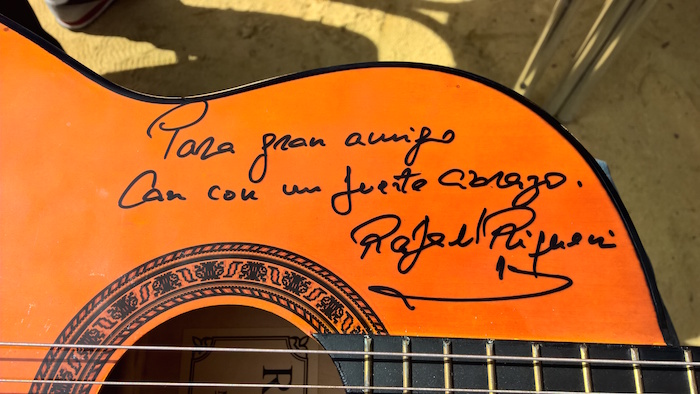 Para gran amigo
Can con un fuerte abrazo.
Rafael Riqueni
R